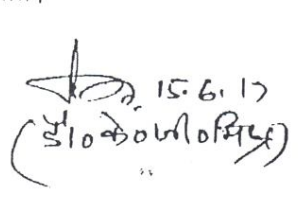 15.6.17
(डॉ० के० पी० मिश्र)